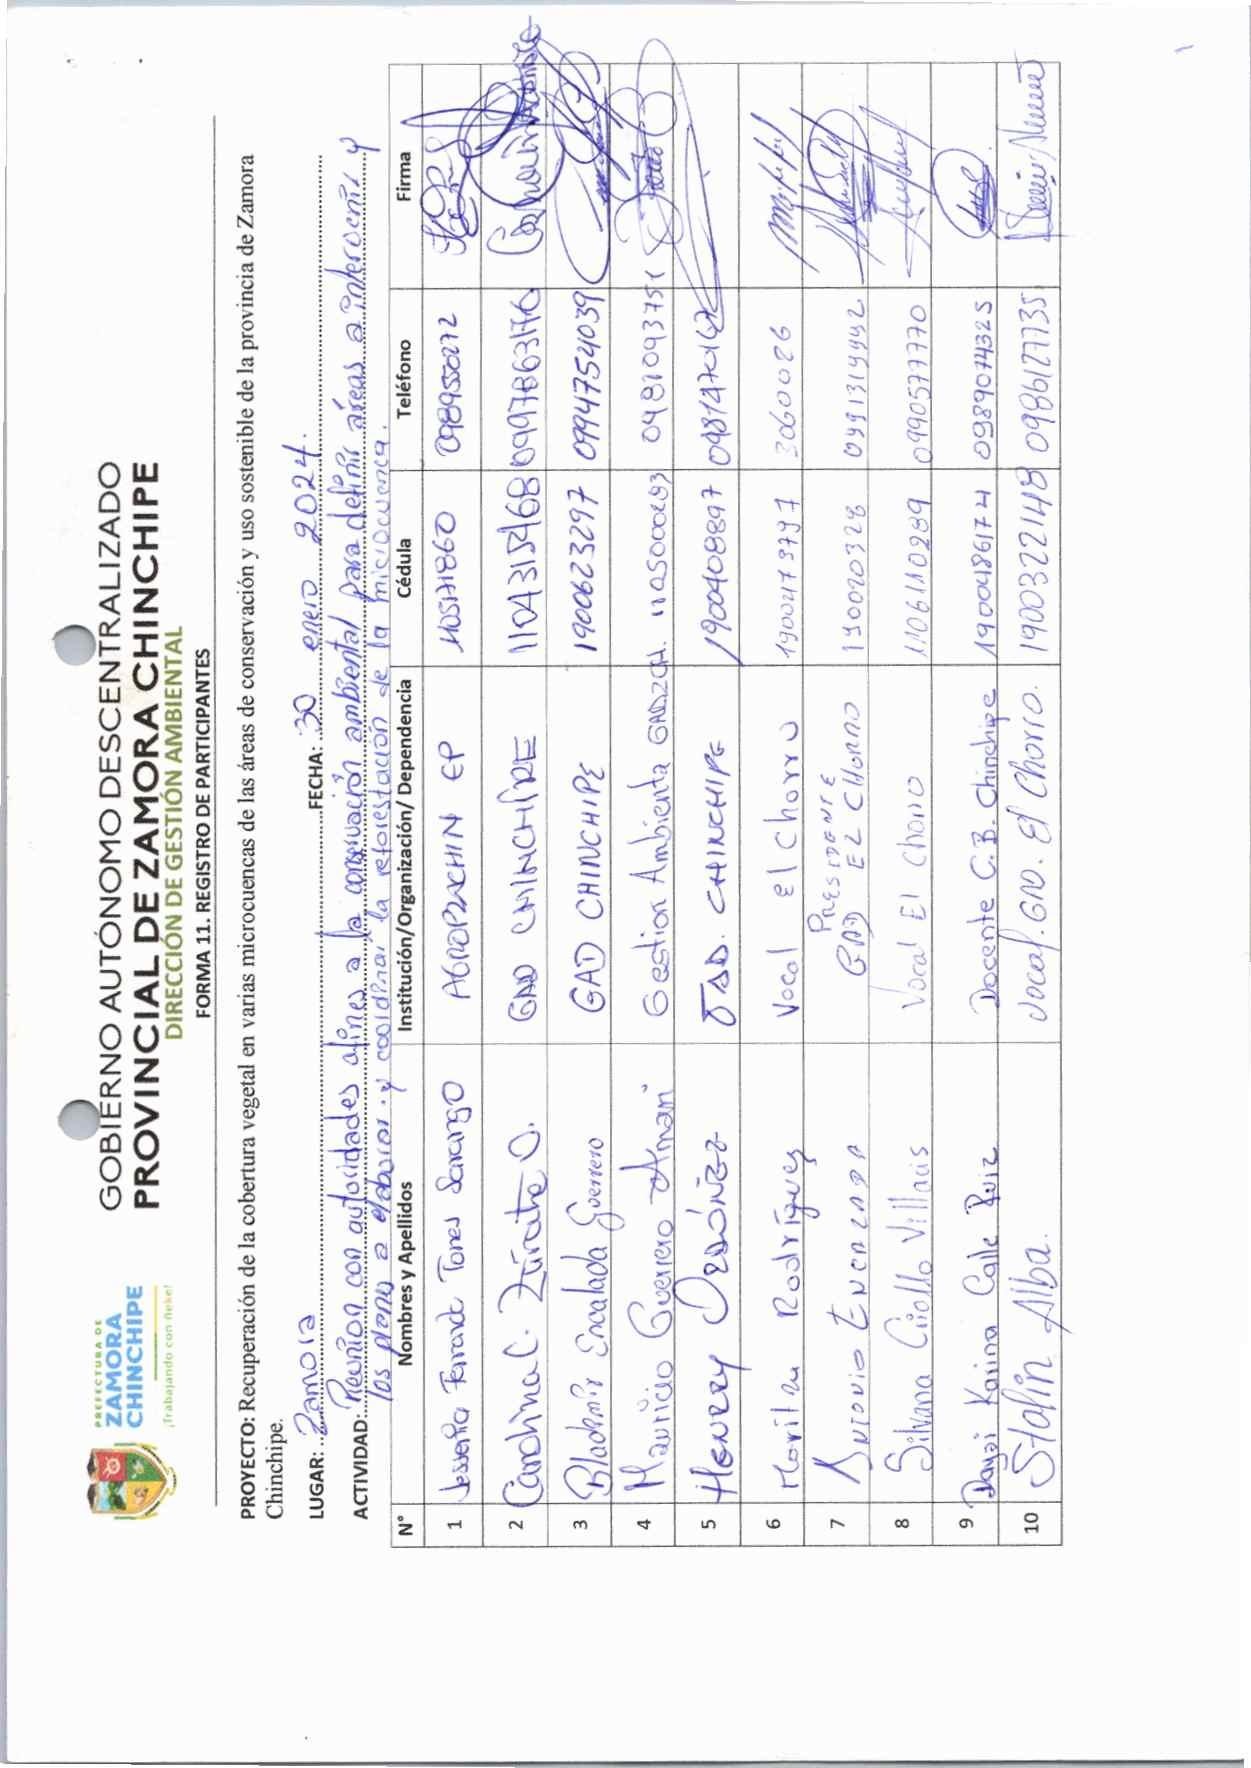 PREFECTURA DE
ZAMORA
CHINCHIPE
¡Trabajando con ñeke!
GOBIERNO AUTÓNOMO DESCENTRALIZADO
PROVINCIAL DE ZAMORA CHINCHIPE
DIRECCIÓN DE GESTIÓN AMBIENTAL
FORMA 11. REGISTRO DE PARTICIPANTES
PROYECTO: Recuperación de la cobertura vegetal en varias microcuencas de las áreas de conservación y uso sostenible de la provincia de Zamora
Chinchipe.
LUGAR: Zamora FECHA: 30 enero 2024.
ACTIVIDAD: Reunión con autoridades afines a la conservación ambiental para definir áreas a intervenir y
los planes a elaborar y coordinar la reforestación de la microcuenca.
N° Nombres y Apellidos Institución/Organización/ Dependencia Cédula Teléfono Firma
1 Torres Sarango AGROPZACHIN EP
2 Carolina C. Zárate O. GAD CHINCHIPE 1104315468 0997863176
3 Bladimir Encalada Guerrero GAD CHINCHIPE 1900623297 0994754039
4 Mauricio Guerrero Gestion Ambienta GADZCH. 1105000283
5 HENRRY ORDÓÑEZ CHINCHIPE 1900408897
6 Rodríguez Vocal El Chorro 1900473797 3060026
7 ANTONIO ENCALADA PRESIDENTE GAD EL CHORRO 190020328
8 Silvana Criollo Villacis Vocal El Chorro 1106110289 0990577770
9 Daysi Karina Calle Ruiz Docente C.B. Chinchipe 1900486174 0989074325
10 Stalin Alba. Vocal. GAD. El Chorro. 1900322148 0986127735